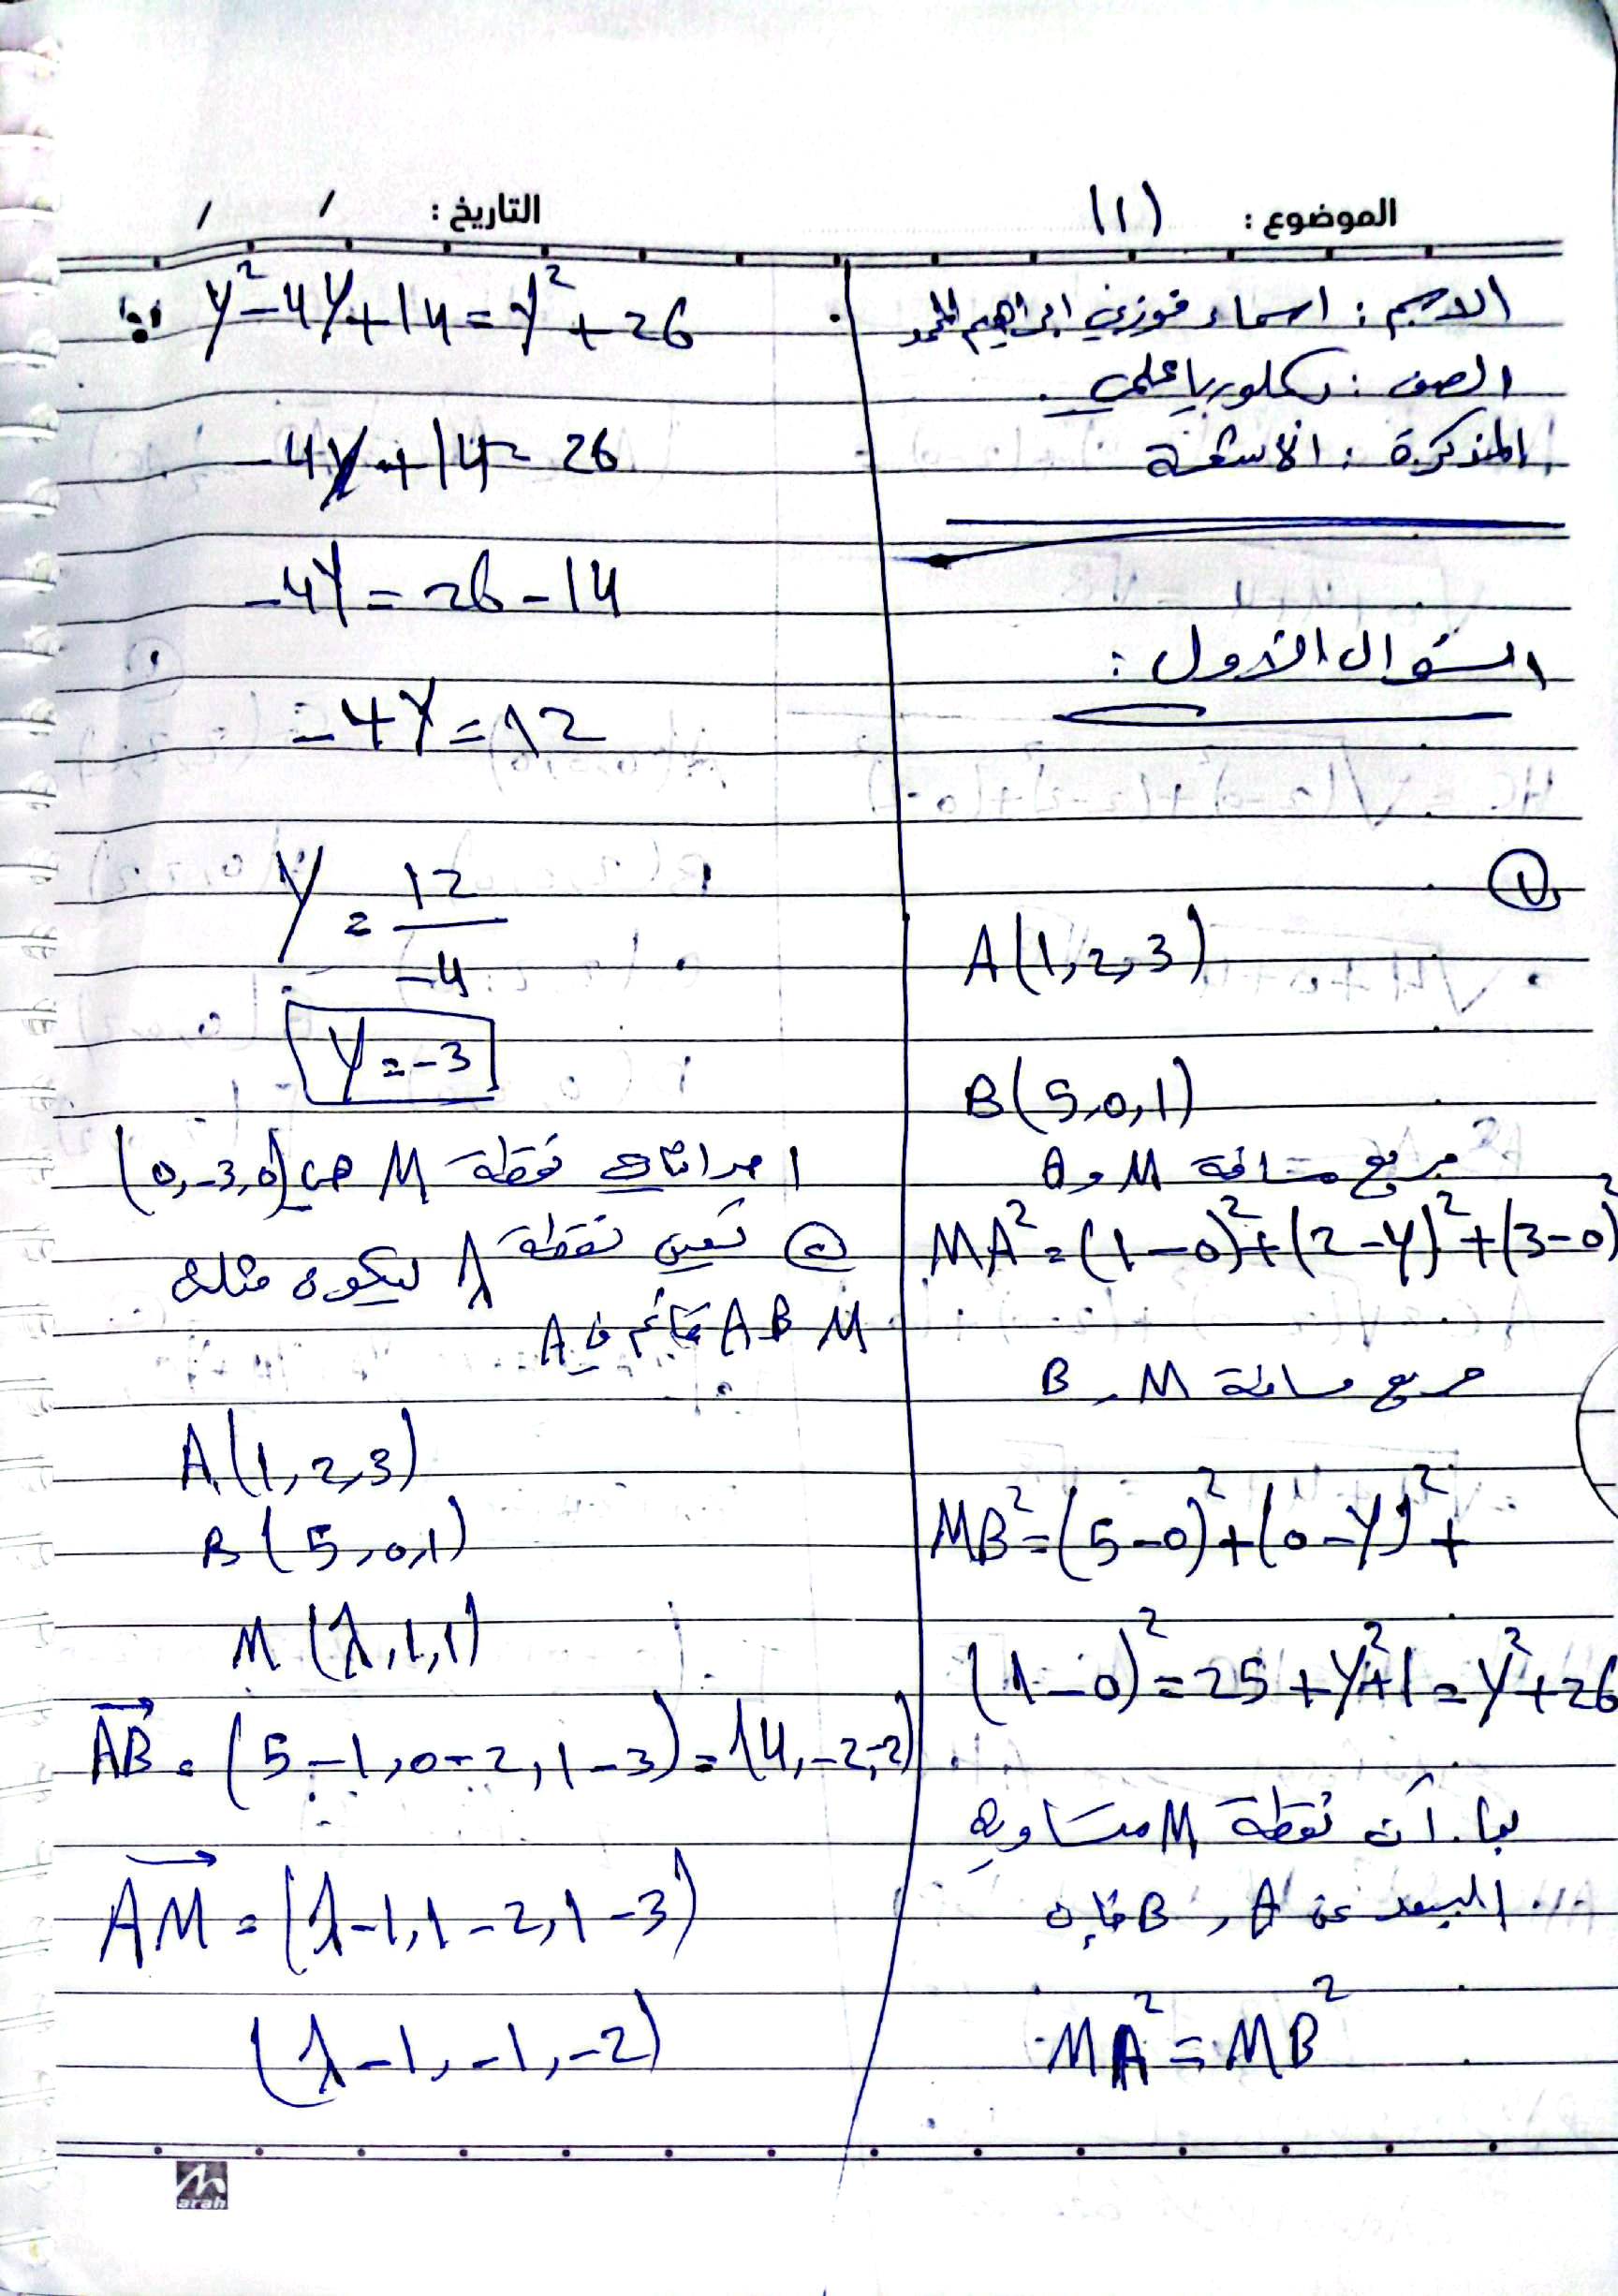 الموضوع : (1)
التاريخ : / /
الاسم : اسماء فوزي ابراهيم المحمد
الصف : بكلوريا علمي .
المذكرة : الأشعة
السؤال الأول :
①
A(1,2,3)
B(5,0,1)
مربع مسافة M و A
MA² = (1-0)² + (2-y)² + (3-0)²
مربع مسافة M و B
MB² = (5-0)² + (0-y)² +
(1-0)² = 25 + y² + 1 = y² + 26
بما أن نقطة M متساوية
البعد عن A و B فإن
MA² = MB²
y² - 4y + 14 = y² + 26
-4y + 14 = 26
-4y = 26 - 14
-4y = 12
y = 12/-4
y = -3
احداثيات نقطة M هي (0,-3,0)
② تعين نقطة λ ليكون مثلث
ABM قائم في A
A(1,2,3)
B(5,0,1)
M(λ,1,1)
AB = (5-1, 0-2, 1-3) = (4,-2,-2)
AM = (λ-1, 1-2, 1-3)
(λ-1, -1, -2)
arah